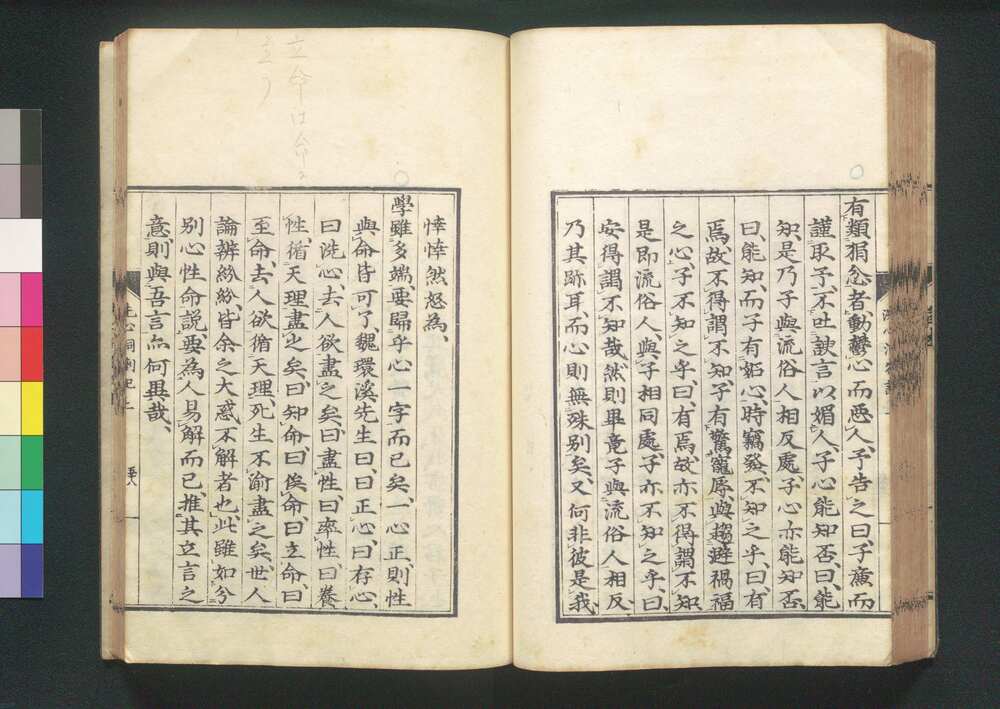 有類狷忿者、動鬱心而惡人、予告之曰、子廉而
謹取予、不吐諛言以媚人、子心能知否、曰、能
知、是乃子與流俗人相反處、子心亦能知否、
曰、能知、而子有妬心、時竊發、不知之乎、曰、有
焉、故不得謂不知、子有驚寵辱、與趨避禍福
之心、子不知之乎、曰、有焉、故亦不得謂不知、
是即流俗人、與子相同處、子亦不知之乎、曰、
安得謂不知哉、然則畢竟子與流俗人相反、
乃其跡耳、而心則無殊別矣、又何非彼是我、
悻悻然怒為、
學雖多端、要歸乎心一字而已矣、一心正、則性
與命皆可了、魏環溪先生曰、曰正心、曰存心、
曰洗心、去人欲盡之矣、曰盡性、曰率性、曰養
性、循天理盡之矣、曰知命、曰俟命、曰立命、曰
至命、去人欲循天理、死生不渝盡之矣、世人
論辨紛紛、皆余之大惑不解者也、此雖如分
別心性命說、要為人易解而已、推其立言之
意、則與吾言亦何異哉、
洗心洞劄記上
五十八
立命